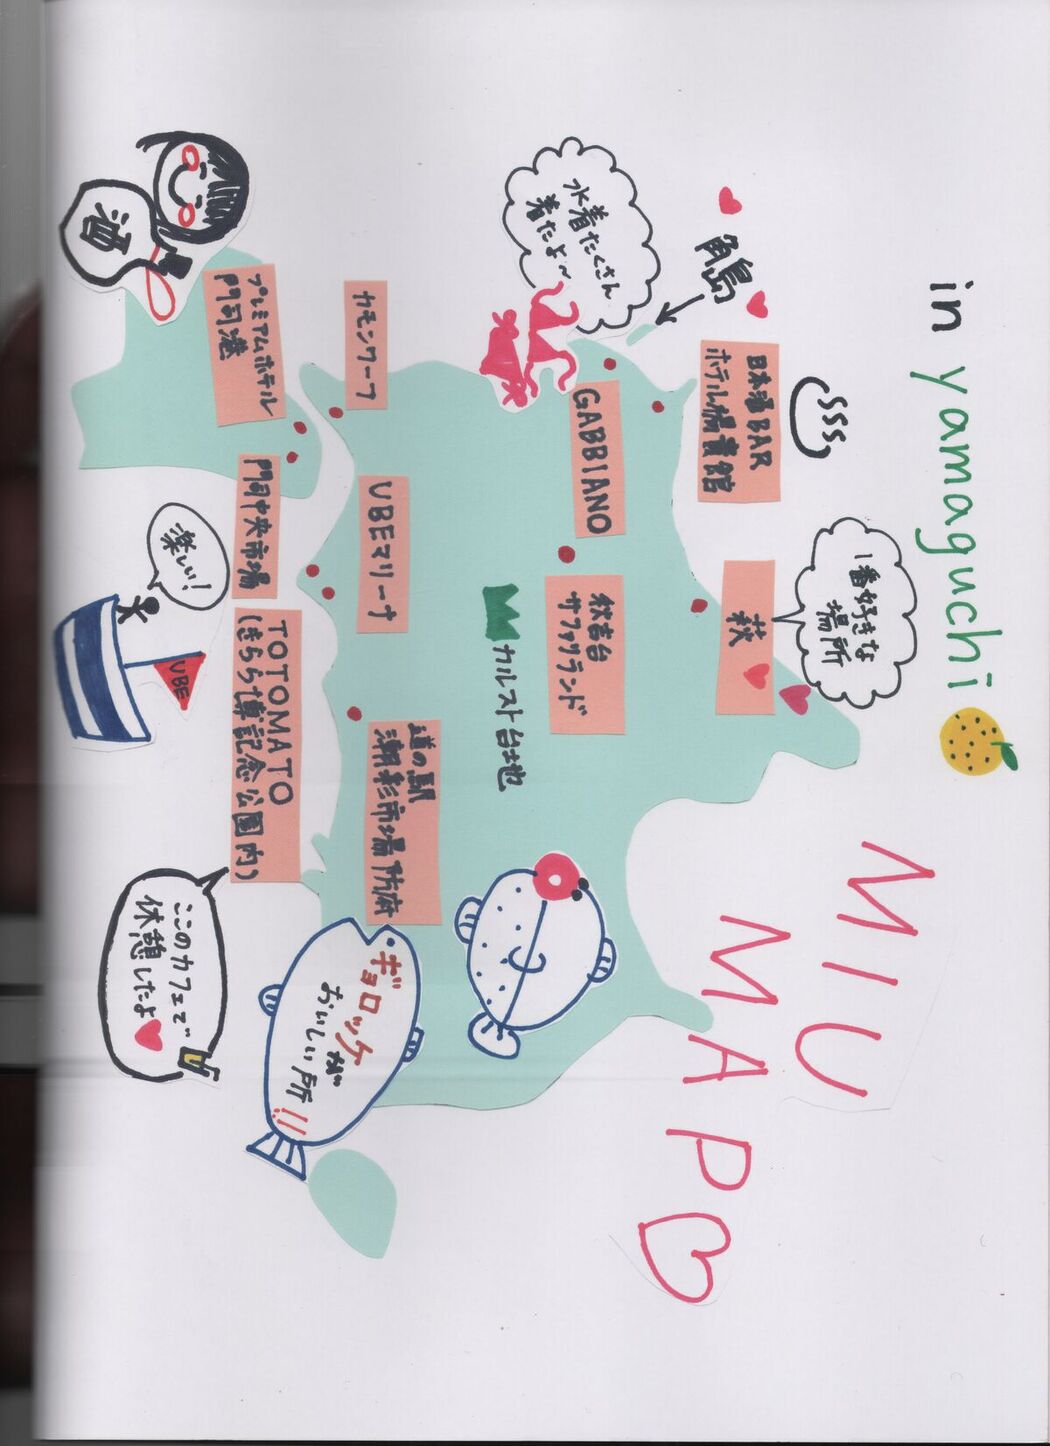 in yamaguchi
MIU
MAP
角島
水着たくさん
着たよ〜
日本酒BAR
ホテル楊貴館
1番好きな
場所
萩
GABBIANO
秋吉台
サファリランド
カルスト台地
カモンワーフ
UBEマリーナ
道の駅
潮彩市場防府
プレミアムホテル
門司港
門司中央市場
TOTOMATO
(きらら博記念公園内)
酒
楽しい!
UBE
ギョロッケ
が
おいしい所!!
ここのカフェで
休憩したよ